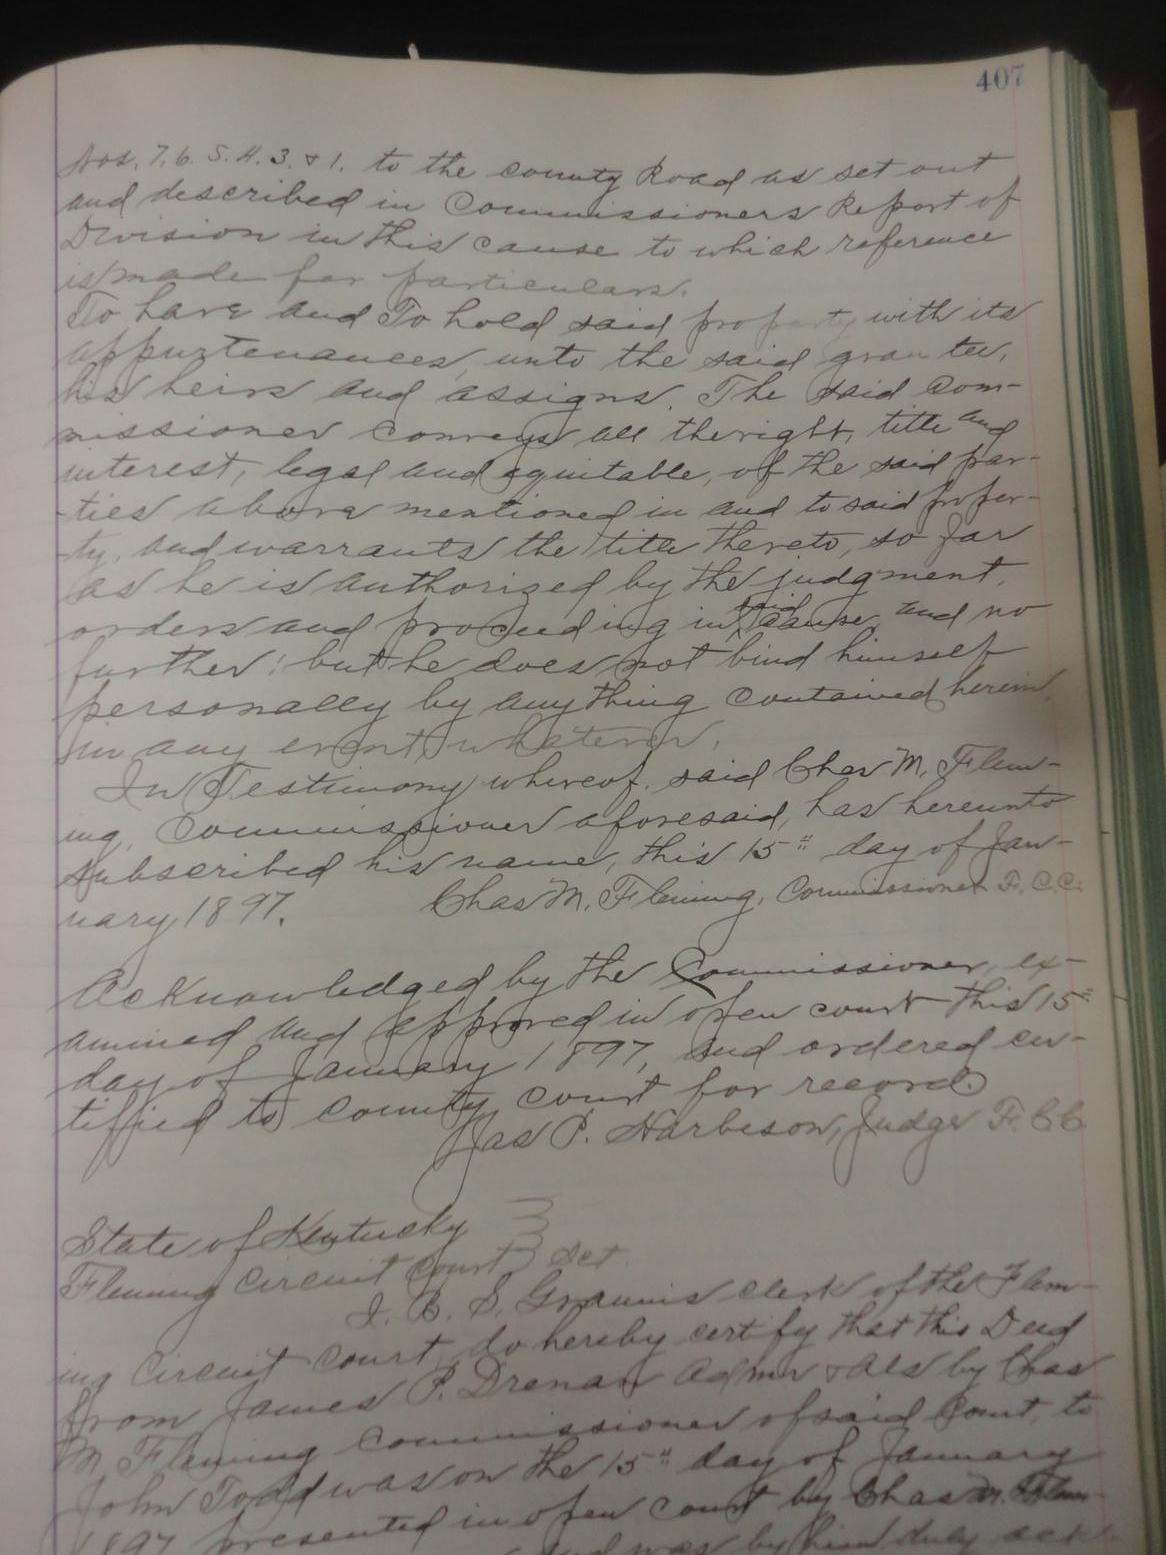 407
Nos. 7. 6. 5. 4. 3. & 1. to the county Road as set out
and described in Commissioners Report of
Division in this cause to which reference
is made for particulars.
To have and To hold said property with its
appurtenances, unto the said grantee,
his heirs and assigns. The said Com-
missioner conveys all the right, title and
interest, legal and equitable, of the said par-
-ties above mentioned in and to said proper-
-ty, and warrants the title thereto, so far
as he is authorized by the judgment,
orders and proceeding in said cause, and no
further; but he does not bind himself
personally by anything contained herein,
in any event whatever.
In Testimony whereof, said Chas M. Flem-
ing, Commissioner aforesaid, has hereunto
subscribed his name, this 15" day of Jan-
uary 1897. Chas M. Fleming, Commissioner F. C. C.
Acknowledged by the Commissioner, ex-
amined and approved in open court this 15"
day of January 1897, and ordered cer-
tified to county court for record.
Jas P. Harbeson, Judge F. C C
State of Kentucky
Fleming circuit court } Sct
I. B. S. Grannis clerk of the Flem-
ing Circuit court, do hereby certify that this Deed
from James P. Drenan Admr & Als by Chas
M. Fleming commissioner of said Court, to
John Todd was on the 15" day of January
1897 presented in open court by Chas M. Flem-
and was by him duly ack